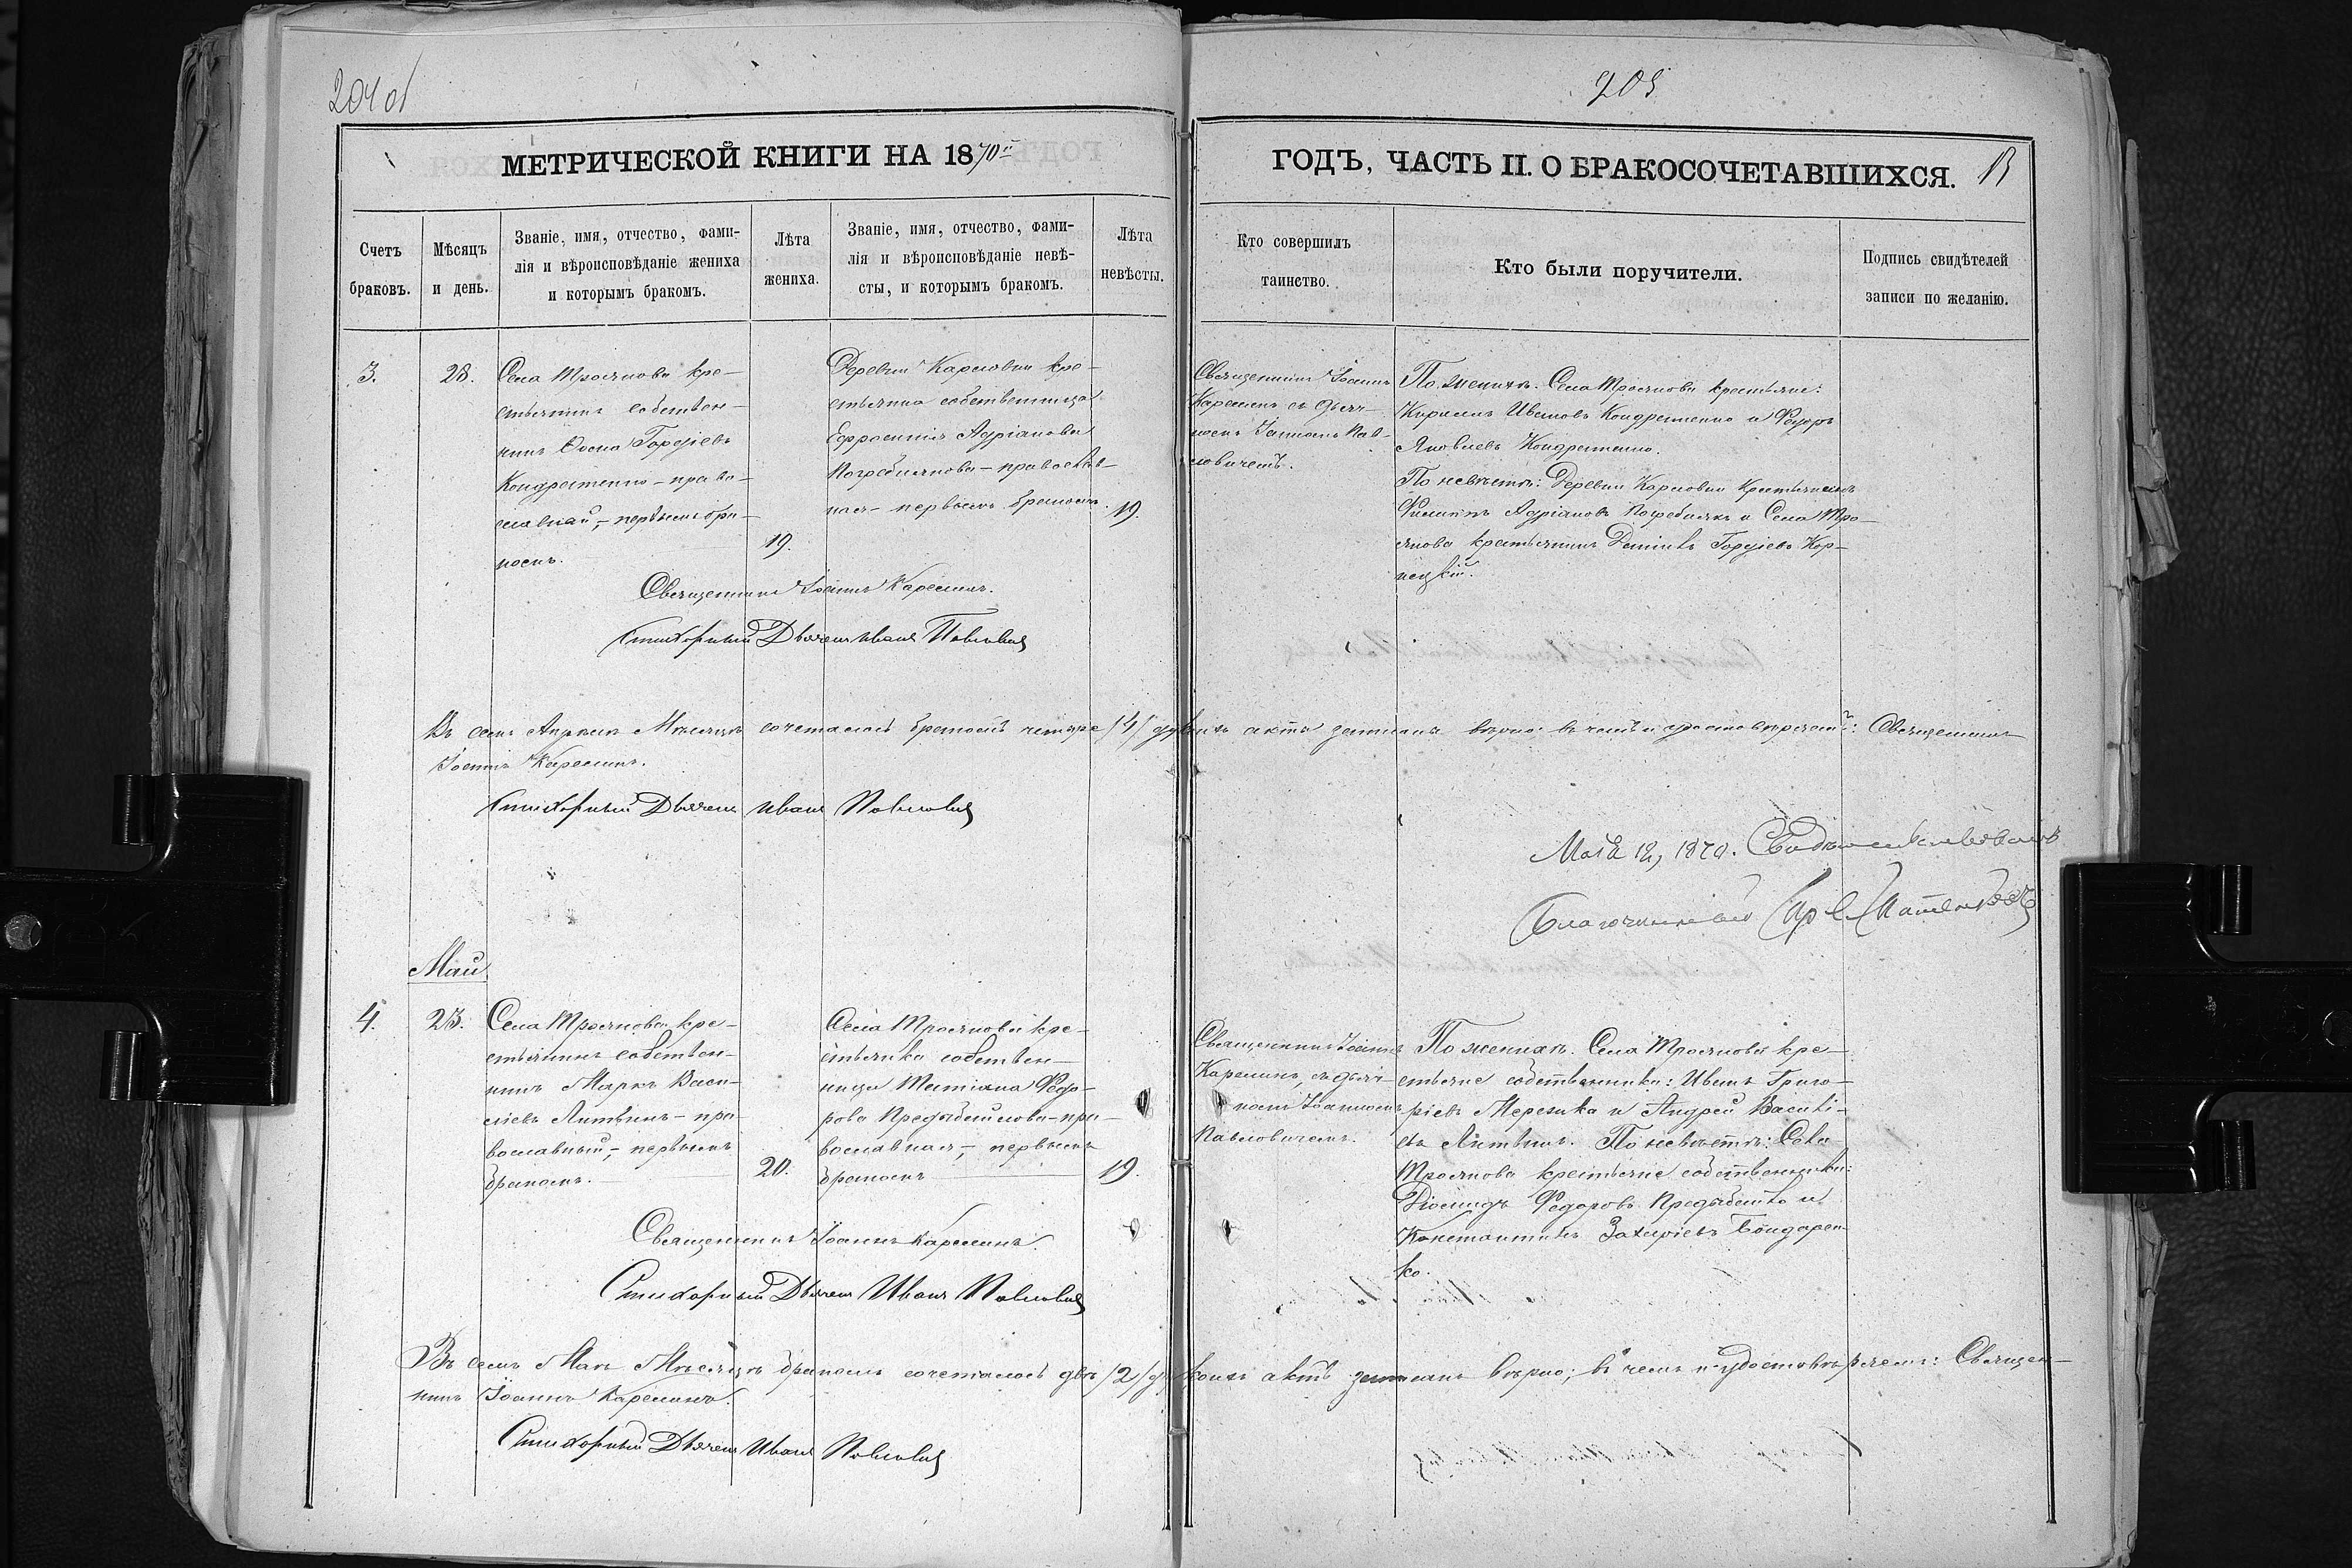 204 об
205
МЕТРИЧЕСКОЙ КНИГИ НА 1870й
ГОДЪ, ЧАСТЬ II. О БРАКОСОЧЕТАВШИХСЯ.
Счетъ
браковъ.
Мѣсяцъ
и день.
Званіе, имя, отчество, фами-
лія и вѣроисповѣданіе жениха
и которымъ бракомъ.
Лѣта
жениха.
Званіе, имя, отчество, фами-
лія и вѣроисповѣданіе невѣ-
сты, и которымъ бракомъ.
Лѣта
невѣсты.
Кто совершилъ
таинство.
Кто были поручители.
Подпись свидѣтелей
записи по желанію.
3.
28.
Села Троянова кре-
стьянинъ собствен-
никъ Гордіевъ
Кондратенко - право-
славный, - первымъ бра-
комъ.
19.
Деревни Карповки кре-
стьянка собственница
Ефросинія Адріанова
Погребнякова - православ-
ная - первымъ бракомъ.
19.
Священникъ Іоаннъ
Карелинъ съ дьяч-
комъ Іоанномъ Пав-
ловичемъ.
По женихѣ: Села Троянова крестьяне:
Кириллъ Ивановъ Кондратенко и Федоръ
Яковлевъ Кондратенко.
По невѣстѣ: Деревни Карповки крестьянинъ
Филиппъ Адріановъ Погребнякъ и Села Тро-
янова крестьянинъ Гордіевъ Кор-
нецкій.
Священникъ Іоаннъ Карелинъ.
Стихарный Дьячекъ Иванъ Павловичъ
Въ семъ Апрѣлѣ Мѣсяцѣ сочеталось бракомъ четыре /4/ актъ записанъ вѣрно: въ чемъ и удостовѣряемъ: Священникъ
Іоаннъ Карелинъ.
Стихарный Дьячекъ Иванъ Павловичъ
Мая 12, 1870. Свидѣтельствовалъ
Благочинный
Май
4.
23.
Села Троянова кре-
стьянинъ собствен-
никъ Маркъ Васи-
ліевъ Литвинъ - пра-
вославный, - первымъ
бракомъ.
20.
Села Троянова кре-
стьянка собствен-
ница Татіана Федо-
рова Предыбайлова - пра-
вославная, - первымъ
бракомъ
19.
Священникъ Іоаннъ
Карелинъ, съ дьяч-
комъ Іоанномъ
Павловичемъ.
По женихѣ: Села Троянова кре-
стьяне собственники: Иванъ Григо-
ріевъ Мережка и Андрей Василі-
евъ Литвинъ. По невѣстѣ: Села
Троянова крестьяне собственники:
Діомидъ Федоровъ Предыбайло и
Константинъ Захаріевъ Бондарен-
ко.
Священникъ Іоаннъ Карелинъ.
Стихарный Дьячекъ Иванъ Павловичъ
Въ семъ Маѣ Мѣсяцѣ бракомъ сочеталось двѣ /2/ актъ записанъ вѣрно; въ чемъ и удостовѣряемъ: Священ-
никъ Іоаннъ Карелинъ.
Стихарный Дьячекъ Иванъ Павловичъ